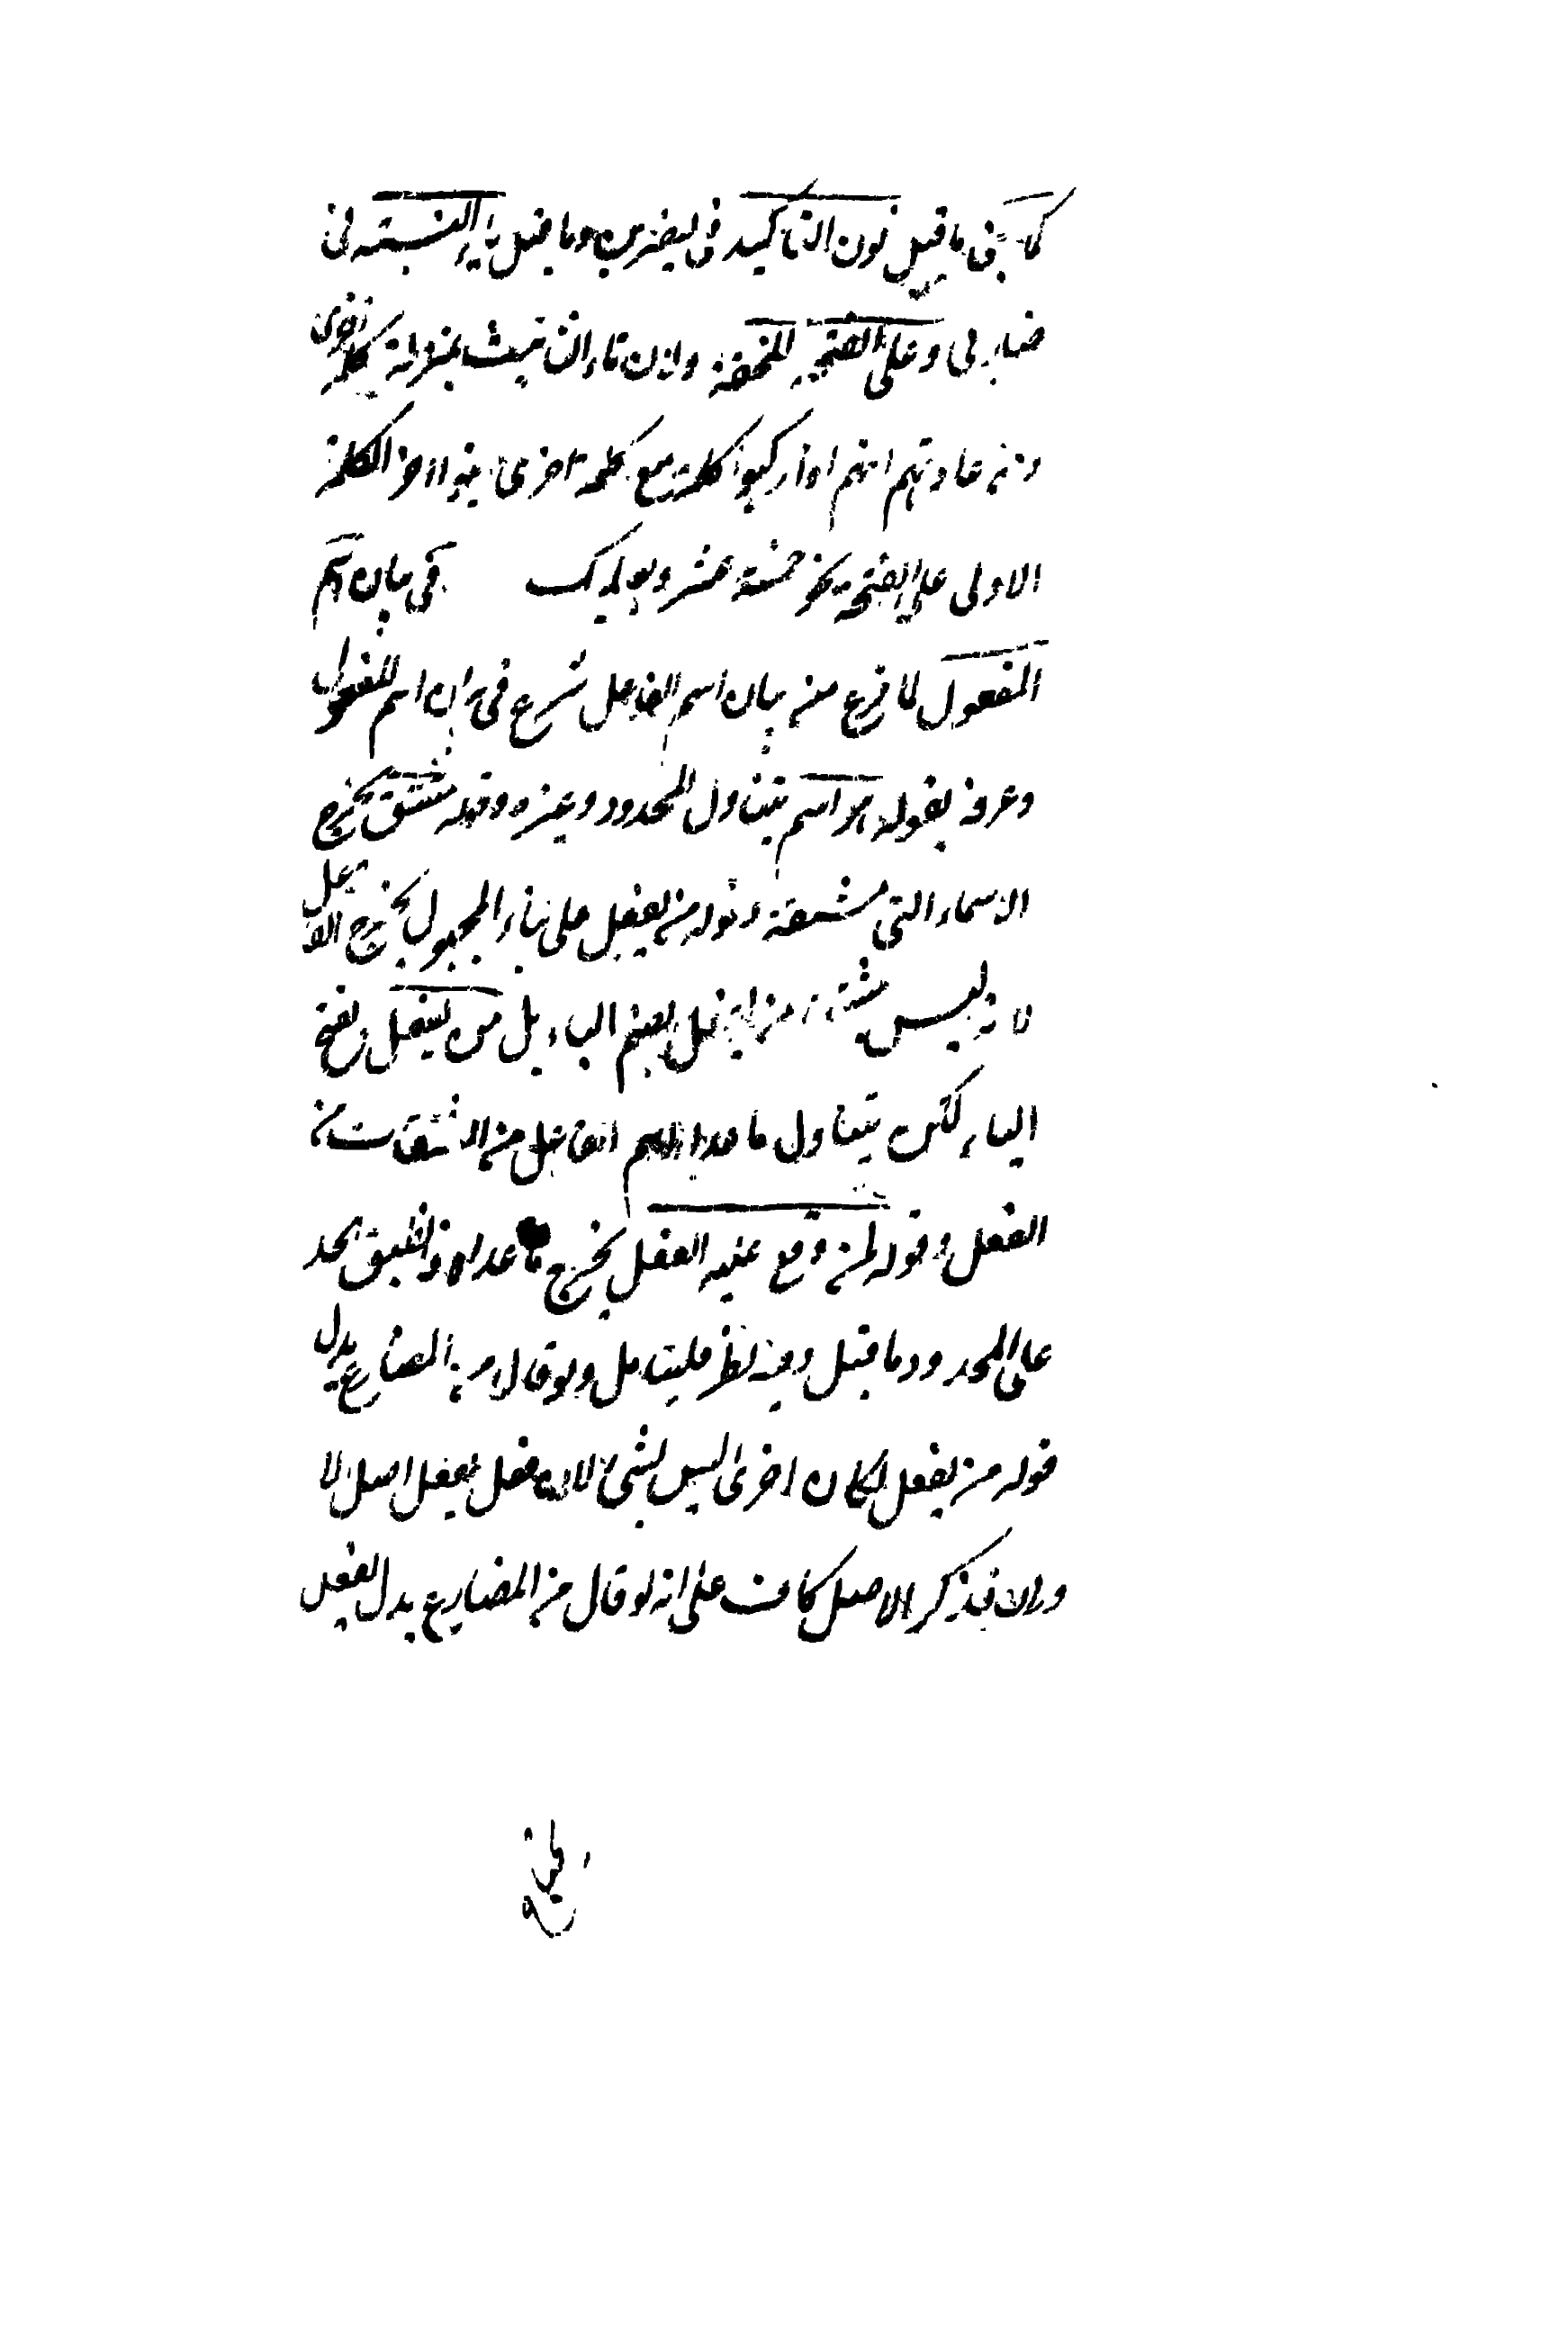 كما فى ما قبل نون التاكيد فى ليضربن وما قبل ياء النسبة فى
ضاربى وعلى الفتحة للخفة ولان تاء التانيث بمنزلة كلمة اخرى
ومن عادتهم انهم اذا ركبوا كلمة مع كلمة اخرى بنوا اخر الكلمة
الاولى على الفتحة نحو خمسة عشر وبعلبك فى بيان اسم
المفعول لما فرغ من بيان اسم الفاعل شرع فى بيان اسم المفعول
وعرفه بقوله هو اسم يتناول المحدود وغيره وقوله مشتق يخرج
الاسماء التى مشتقة وقوله من يفعل على بناء المجهول يخرج الفاعل
لانه ليس مشتقا من يفعل بضم الياء بل من يفعل بفتح
الياء لكن يتناول ما عدا اسم الفاعل من المشتقات من
الفعل وقوله لمن وقع عليه الفعل يخرج ما عداه فانطبق الحد
على المحدود وما قيل وفيه نظر فليتامل ولو قال من المضارع بدل
قوله من يفعل لكان احرى ليس بشئ لان فعل يفعل اصل لا
ولان بذكر الاصل كاف على انه لو قال من المضارع بدل يفعل